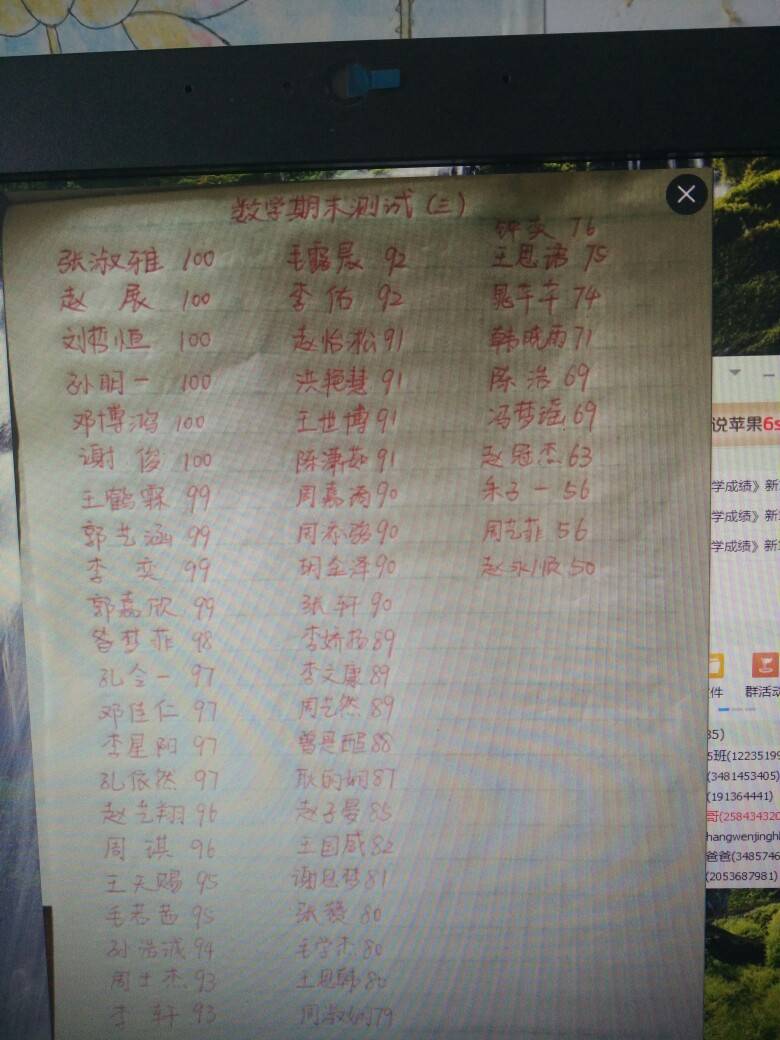 数学期末测试(三)
张淑雅 100
赵展 100
刘哲恒 100
孙明一 100
邓博鸿 100
谢俊 100
王鹤霖 99
郭艺涵 99
李奕 99
郭嘉欣 99
昝梦菲 98
孔令一 97
邓佳仁 97
李星阿 97
孔依然 97
赵艺翔 96
周琪 96
王天赐 95
毛若茜 95
孙浩诚 94
周士杰 93
李轩 93
毛露晨 92
李佑 92
赵怡淞 91
洪艳慧 91
王世博 91
陈潇茹 91
周嘉 90
周 90
玥金泽 90
张轩 90
李娇扬 89
李文康 89
周艺然 89
曾思 88
耿 87
赵子曼 85
王国威 82
谢思梦 81
张 80
毛学杰 80
王思韩 80
周 79
钟 76
王思诺 75
晁 74
韩晓雨 71
陈浩 69
冯梦瑶 69
赵冠杰 63
朱子一 56
周艺菲 56
赵永顺 50
说苹果6s
学成绩》新
学成绩》新
学成绩》新
件 群活动
35)
5班(12235199
(3481453405)
(191364441)
哥(258434320
hangwenjingh
爸爸(3485746
(2053687981)